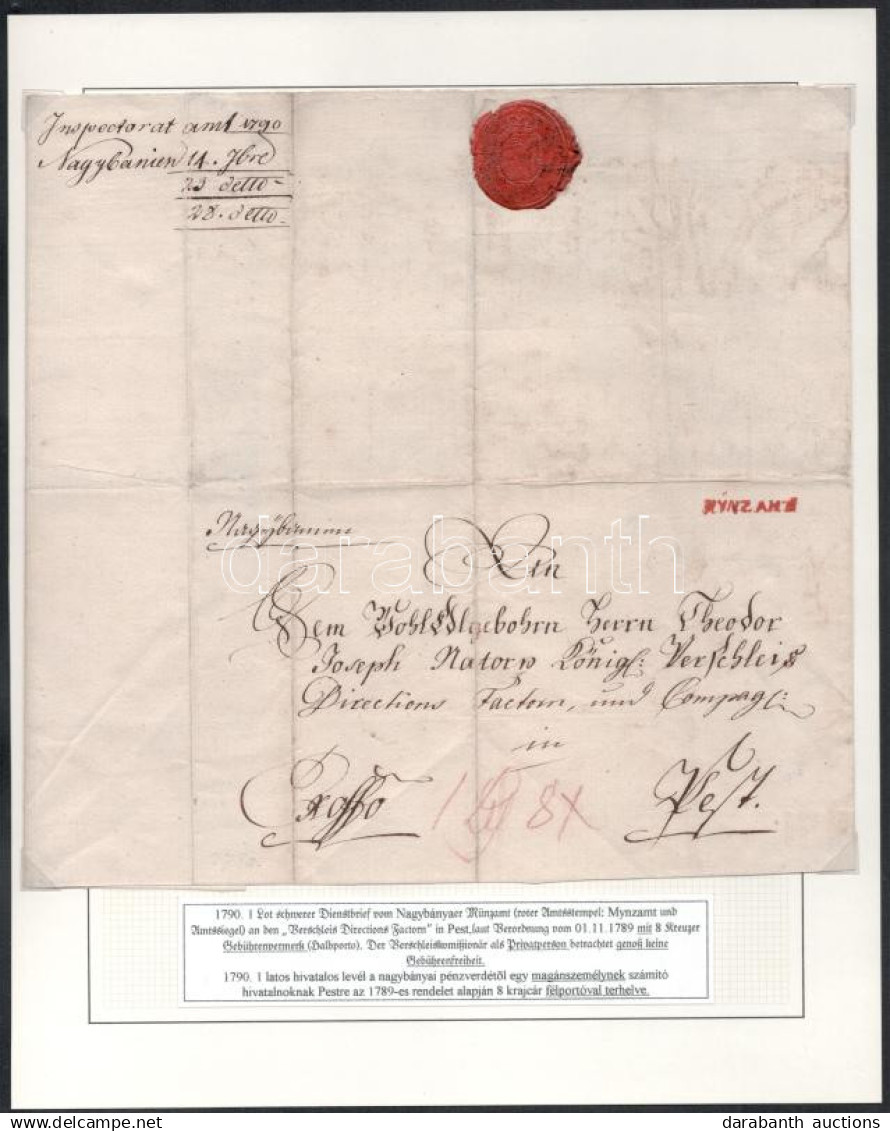 Inspectorat amt 1790
Nagybanien 14. 7bre
23 detto
28. detto
MÜNZAMT
Nagÿbanien
An
Dem Wohl Edlgebohrn Herrn Theodor
Joseph Natorp Königl: Verschleis
Directions Factorn, und Compag:
in
Exoffo
Pest.
8x
darabanth
1790. 1 Lot schwerer Dienstbrief vom Nagybányaer Münzamt (roter Amtsstempel: Mynzamt und
Amtssiegel) an den „Verschleis Directions Factorn" in Pest, laut Verordnung vom 01.11.1789 mit 8 Kreuzer
Gebührenvermerk (Halbporto). Der Verschleiskomissionär als Privatperson betrachtet genoß keine
Gebührenfreiheit.
1790. 1 latos hivatalos levél a nagybányai pénzverdétől egy magánszemélynek számító
hivatalnoknak Pestre az 1789-es rendelet alapján 8 krajcár félportóval terhelve.
darabanth auctions